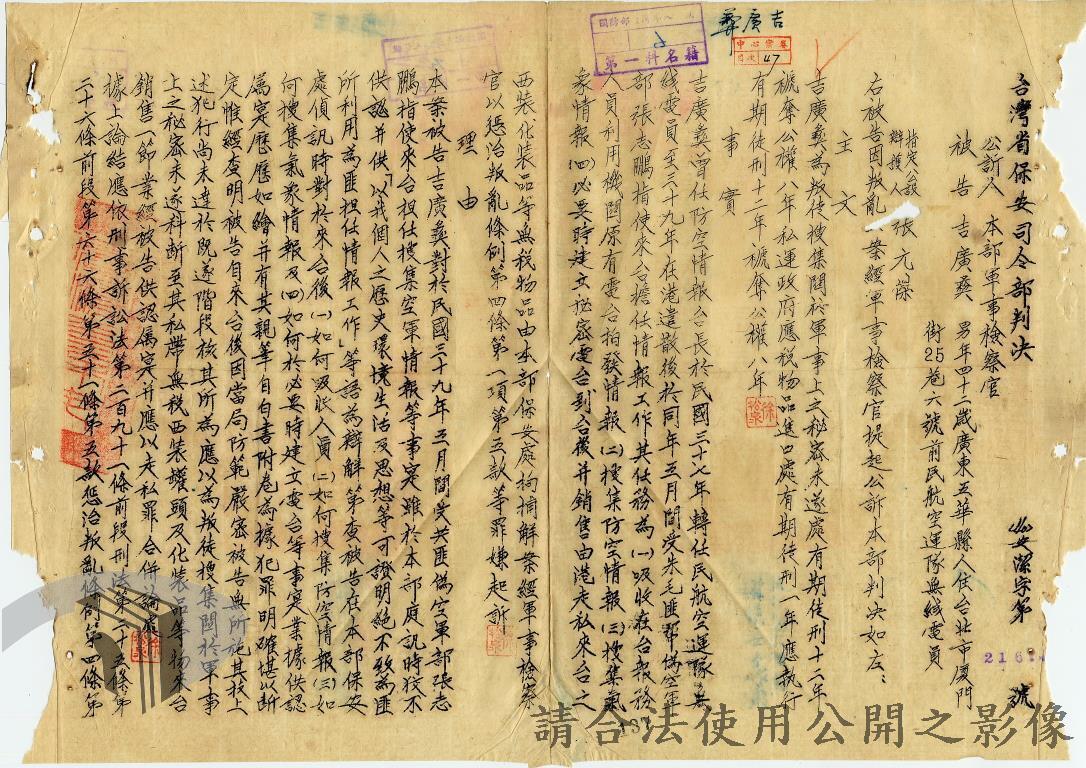 吉廣彝
國防部
第一科名籍
中心案卷
目次 47
台灣省保安司令部判決
安潔字第 號
216
公訴人 本部軍事檢察官
被告 吉廣彝 男年四十二歲廣東五華縣人住台北市廈門
街25巷六號前民航空運隊無線電員
指定公設辯護人 張元傑
右被告因叛亂 案經軍事檢察官提起公訴本部判決如左：
主文
吉廣彝為叛徒搜集關於軍事上之秘密未遂處有期徒刑十二年
褫奪公權八年私運政府應稅物品進口處有期徒刑一年應執行
有期徒刑十二年褫奪公權八年
事實
吉廣彝曾任防空情報台台長於民國三十七年轉任民航空運隊無
線電員至三十九年在港遣散後於同年五月間受朱毛匪幫偽空軍
部張志鵬指使來台擔任情報工作其任務為(一)吸收在台報務
人員利用機關原有電台拍發情報(二)搜集防空情報(三)搜集氣
象情報(四)必要時建立秘密電台到台後并銷售由港走私來台之
西裝化裝品等無稅物品由本部保安處拘捕解案經軍事檢察
官以懲治叛亂條例第四條第一項第五款等罪嫌起訴
理由
本案被告吉廣彝對於民國三十九年五月間受共匪偽空軍部張志
鵬指使來台担任搜集空軍情報等事實雖於本部庭訊時狡不
供認并供「以我個人之歷史環境生活及思想等可證明絕不致為匪
所利用為匪担任情報工作」等語為辯解第查被告在本部保安
處偵訊時對於來台後(一)如何吸收人員(二)如何搜集防空情報(三)如
何搜集氣象情報及(四)如何於必要時建立電台等事實業據供認
屬實歷歷如繪并有其親筆自白書附卷為據犯罪明確堪以斷
定惟經查明被告自來台後因當局防範嚴密被告無所施其技上
述犯行尚未達於既遂階段核其所為應以為叛徒搜集關於軍事
上之秘密未遂科斷至其私帶無稅西裝罐頭及化裝品等物來台
銷售一節業經被告供認屬實并應以走私罪合併論處
據上論結應依刑事訴訟法第二百九十一條前段刑法第二十五條第
二十六條前段第六十六條第五十一條第五款懲治叛亂條例第四條第
請合法使用公開之影像